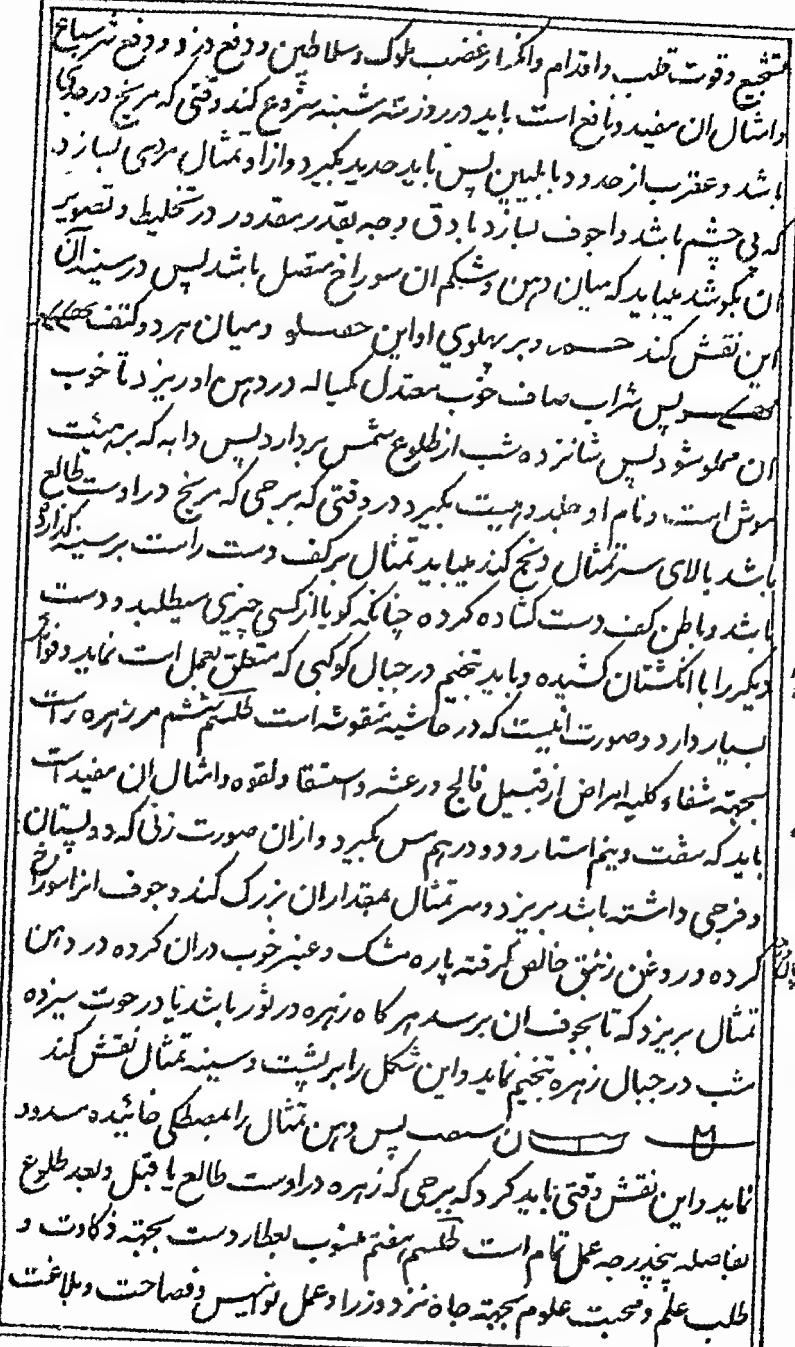 تشجیع و قوت قلب و اقدام و انحراز غضب ملوک و سلاطین و دفع دزد و دفع شر سباع
و امثال آن مفید و نافع است باید در روز سه شنبه شروع کند وقتی که مریخ در جدی
باشد و عقرب از حدود پس باید حدید بگیرد و ازو تمثال مردی بسازد
که بی چشم باشد و اجوف بسازد بادق وجه بقدر مقدور در تخلیط و تصویر
آن بکوشد بیاید که میان دهن و شکم آن سوراخ متصل باشد پس در سینه آن
این نقش کند و بر پهلوی او این و میان هر دو کتف
پس شراب صاف خوب معتدل کمیاله در دهن او ریزد تا خوب
آن مملو شود پس شانزده شب از طلوع شمس بردارد پس دابه که بر هیئت
موش است و نام او خلد و نیست بگیرد در وقتی که برجی که مریخ در اوست طالع
باشد بالای سر تمثال ذبح کند بیاید تمثال بر کف دست راست بر سینه گذارده
باشد و باطن کف دست گشاده کرده چنانکه گویا از کسی چیزی میطلبد و دست
دیگر را با انگشتان کشیده و باید تنجیم در جبال کوکبی که متعلق بعمل است نماید و فواید
بسیار دارد و صورت اینست که در حاشیه منقوشه است طلسم ششم مر زهره راست
بجهته شفاء کلیه امراض از قبیل فالج و رعشه و استسقا و لقوه و امثال آن مفید است
باید که هفت و نیم استار و دو درهم مس بگیرد و ازان صورت زنی که دو پستان
و فرجی داشته باشد بریزد و سر تمثال بمقدار آن بزرگ کند و جوف انرا سوراخ
کرده و روغن زنبق خالص گرفته پاره مشک و عنبر خوب دران کرده در دهن
تمثال بریزد که تا بجوف آن برسد هر گاه زهره در ثور باشد یا در حوت سیزده
شب در جبال زهره تنجیم نماید و این شکل را بر پشت و سینه تمثال نقش کند
پس دهن تمثال را بمصطکی خائیده مسدود
نماید و این نقش وقتی باید کرد که برجی که زهره در اوست طالع یا قبل و بعد طلوع
بفاصله پنجدرجه عمل تمام است طلسم هفتم منسوب بعطارد است بجهته ذکاوت و
طلب علم و محبت علوم بجهته جاه نزد وزرا و عمل نوامیس و فصاحت و بلاغت